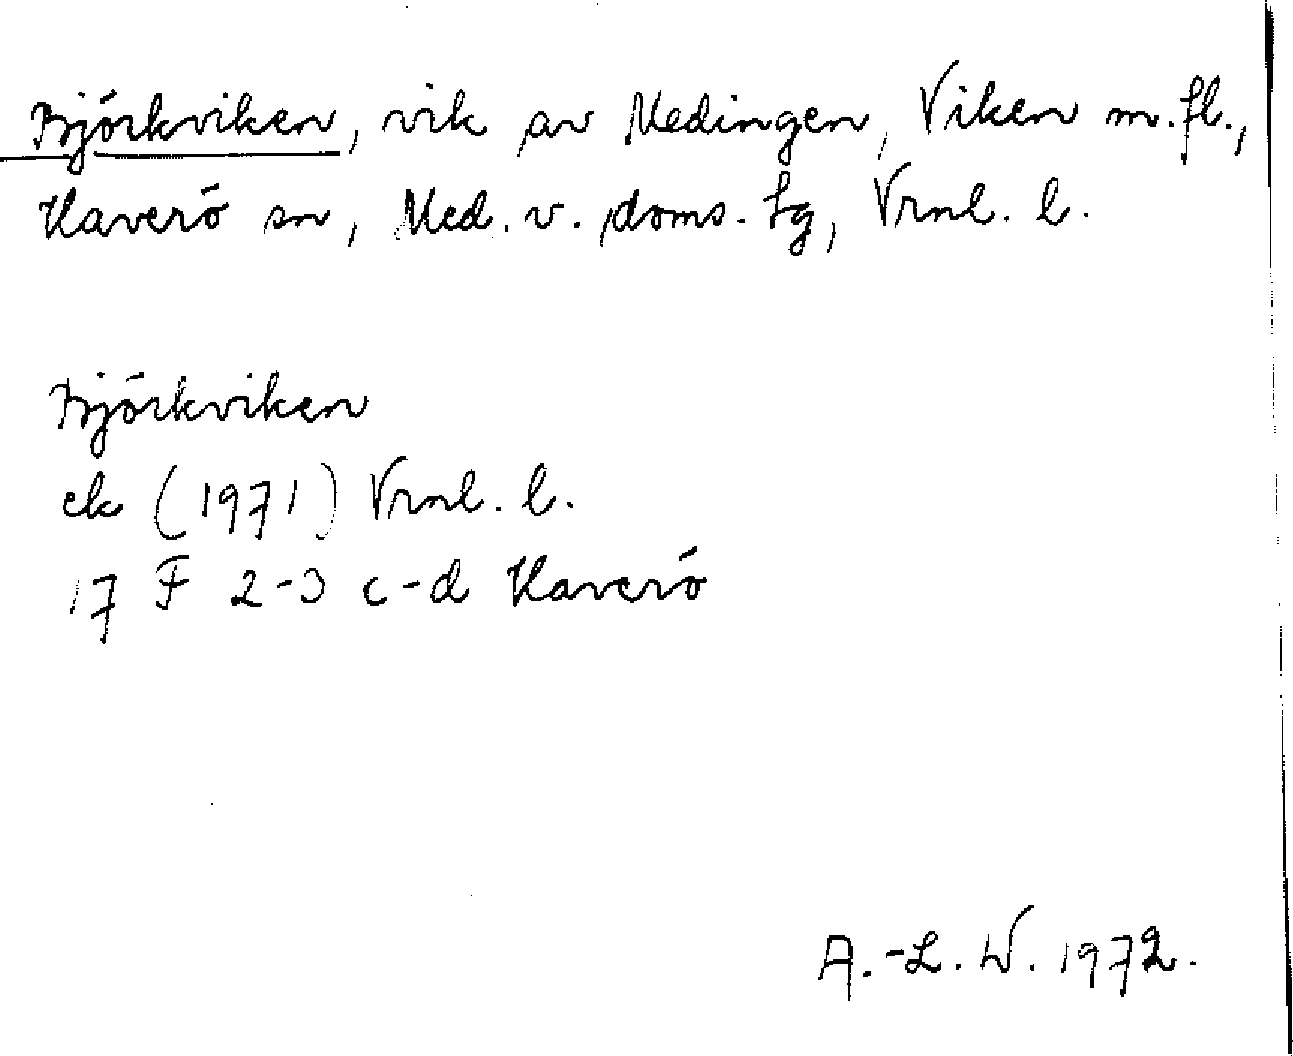 Björkviken, vik av Medingen, Viken m. fl.,
Haverö sn, Med. v. doms. tg, Vrnl. l.
Björkviken
ek (1971) Vrnl. l.
17 F 2-3 c-d Haverö
A.-L. W. 1972.